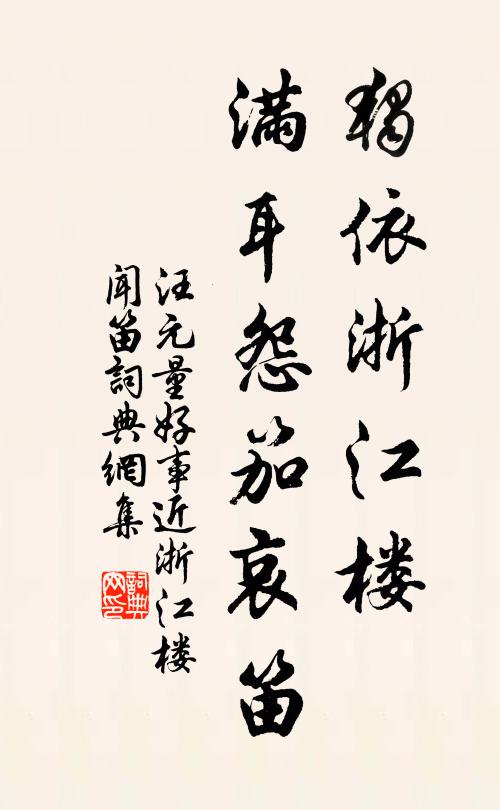 獨依浙江楼
滿耳怨笳哀笛
汪元量好事近浙江楼
闻笛詞典網集
詞典网印